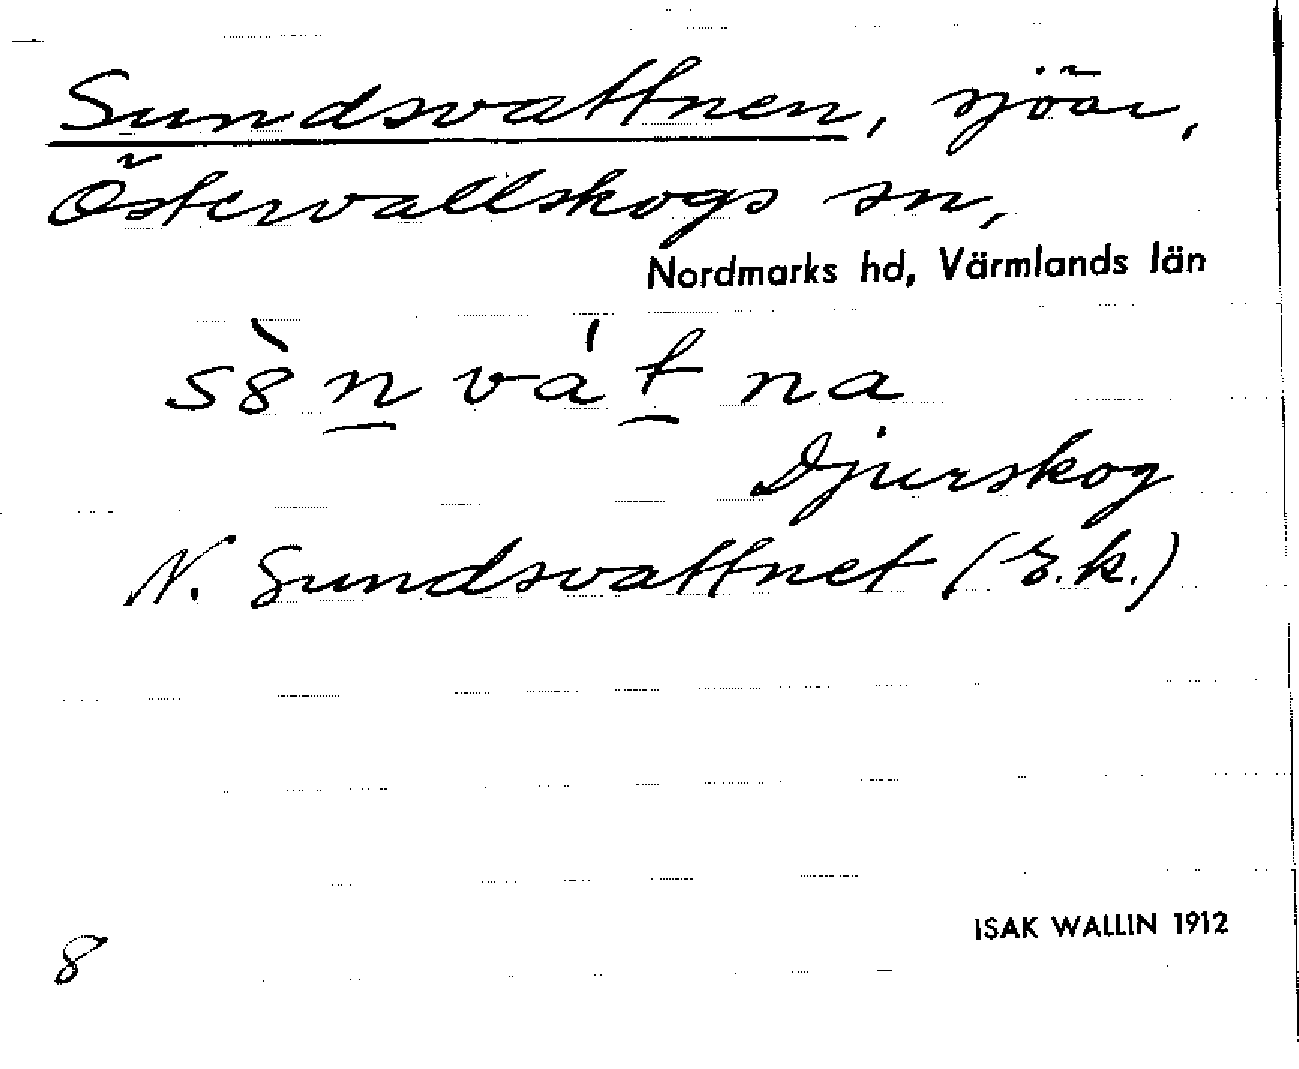 Sundsvattnen, sjöar,
Östervallskogs sn,
Nordmarks hd, Värmlands län
sò̀n̲ vát̲ na
Djurskog
N. Sundsvattnet (E.k.)
8
ISAK WALLIN 1912